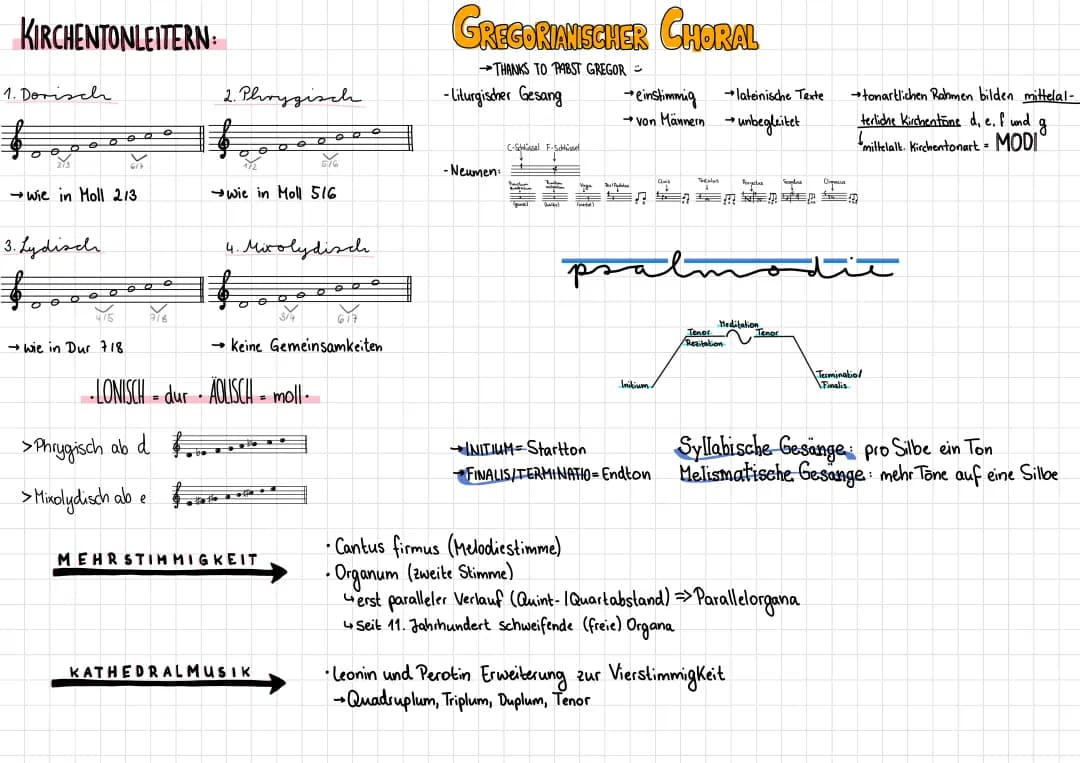 KIRCHENTONLEITERN:
1. Dorisch
2. Phrygisch
2/3
6/7
1/2
5/6
→wie in Moll 2/3
→wie in Moll 5/6
3. Lydisch
4. Mixolydisch
4/5
7/8
3/4
6/7
→wie in Dur 7/8
→ keine Gemeinsamkeiten
·LONISCH = dur · ÄOLISCH = moll·
>Phrygisch ab d
>Mixolydisch ab e
GREGORIANISCHER CHORAL
→THANKS TO PABST GREGOR
-Liturgischer Gesang
→einstimmig
→lateinische Texte
→von Männern
→unbegleitet
→tonartlichen Rahmen bilden mittelal-
terliche Kirchentöne d, e, f und g
mittelalt. Kirchentonart = MODI
C-Schlüssel F-Schlüssel
-Neumen:
Virga
Clivis
Torculus
Porrectus
Scandicus
Climacus
psalmodie
Meditation
Tenor
Tenor
Rezitation
Initium
Terminatio/
Finalis
→INITIUM= Startton
→FINALIS/TERMINATIO= Endton
Syllabische Gesänge: pro Silbe ein Ton
Melismatische Gesänge: mehr Töne auf eine Silbe
MEHRSTIMMIGKEIT
·Cantus firmus (Melodiestimme)
·Organum (zweite Stimme)
↳erst paralleler Verlauf (Quint-/Quartabstand) ⇒Parallelorgana
↳seit 11. Jahrhundert schweifende (freie) Organa
KATHEDRALMUSIK
·Leonin und Perotin Erweiterung zur Vierstimmigkeit
→Quadruplum, Triplum, Duplum, Tenor